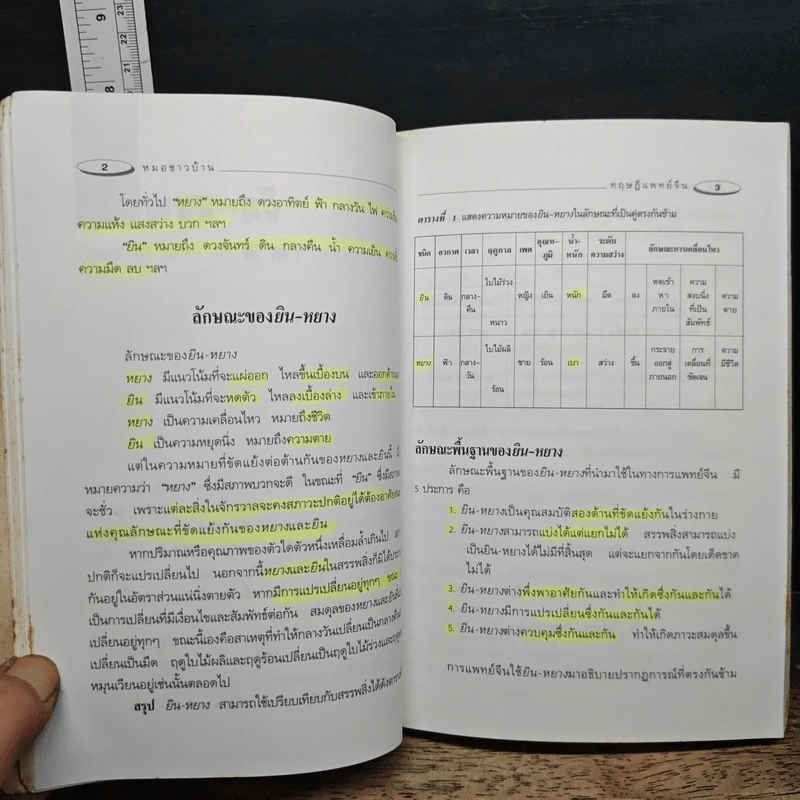 9
8
23
22
21
2 หมอชาวบ้าน
โดยทั่วไป "หยาง" หมายถึง ดวงอาทิตย์ ฟ้า กลางวัน ไฟ
ความแห้ง แสงสว่าง บวก ฯลฯ
"ยิน" หมายถึง ดวงจันทร์ ดิน กลางคืน น้ำ ความเย็น
ความมืด ลบ ฯลฯ
ลักษณะของยิน-หยาง
ลักษณะของยิน-หยาง
หยาง มีแนวโน้มที่จะแผ่ออก ไหลขึ้นเบื้องบน และออกด้านนอก
ยิน มีแนวโน้มที่จะหดตัว ไหลลงเบื้องล่าง และเข้าภายใน
หยาง เป็นความเคลื่อนไหว หมายถึงชีวิต
ยิน เป็นความหยุดนิ่ง หมายถึงความตาย
แต่ในความหมายที่ขัดแย้งต่อต้านกันของหยางและยินนี้
หมายความว่า "หยาง" ซึ่งมีสภาพบวกจะดี ในขณะที่ "ยิน" ซึ่งมีสภาพ
จะชั่ว เพราะแต่ละสิ่งในจักรวาลจะคงสภาวะปกติอยู่ได้ต้องอาศัย
แห่งคุณลักษณะที่ขัดแย้งกันของหยางและยิน
หากปริมาณหรือคุณภาพของตัวใดตัวหนึ่งเหลื่อมล้ำเกินไป
ปกติก็จะแปรเปลี่ยนไป นอกจากนี้หยางและยินในสรรพสิ่งก็มิได้
กันอยู่ในอัตราส่วนแน่นิ่งตายตัว หากมีการแปรเปลี่ยนอยู่ทุกๆ ขณะ
เป็นการเปลี่ยนที่มีเงื่อนไขและสัมพันธ์ต่อกัน สมดุลของหยางและยิน
เปลี่ยนอยู่ทุกๆ ขณะนี้เองคือสาเหตุที่ทำให้กลางวันเปลี่ยนเป็นกลางคืน
เปลี่ยนเป็นมืด ฤดูใบไม้ผลิและฤดูร้อนเปลี่ยนเป็นฤดูใบไม้ร่วงและ
หมุนเวียนอยู่เช่นนั้นตลอดไป
สรุป ยิน-หยาง สามารถใช้เปรียบเทียบกับสรรพสิ่งได้ดังตาราง
ทฤษฎีแพทย์จีน 3
ตารางที่ 1 แสดงความหมายของยิน-หยางในลักษณะที่เป็นคู่ตรงกันข้าม
ชนิด อวกาศ เวลา ฤดูกาล เพศ อุณหภูมิ น้ำหนัก ระดับความสว่าง ลักษณะการเคลื่อนไหว
ยิน ดิน กลางคืน ใบไม้ร่วง หนาว หญิง เย็น หนัก มืด ลง หดเข้าหาภายใน ความสงบนิ่งที่เป็นสัมพัทธ์ ความตาย
หยาง ฟ้า กลางวัน ใบไม้ผลิ ร้อน ชาย ร้อน เบา สว่าง ขึ้น กระจายออกสู่ภายนอก การเคลื่อนที่ชัดเจน ความมีชีวิต
ลักษณะพื้นฐานของยิน-หยาง
ลักษณะพื้นฐานของยิน-หยางที่นำมาใช้ในทางการแพทย์จีน มี
5 ประการ คือ
1. ยิน-หยางเป็นคุณสมบัติสองด้านที่ขัดแย้งกันในร่างกาย
2. ยิน-หยางสามารถแบ่งได้แต่แยกไม่ได้ สรรพสิ่งสามารถแบ่ง
เป็นยิน-หยางได้ไม่มีที่สิ้นสุด แต่จะแยกจากกันโดยเด็ดขาด
ไม่ได้
3. ยิน-หยางต่างพึ่งพาอาศัยกันและทำให้เกิดซึ่งกันและกันได้
4. ยิน-หยางมีการแปรเปลี่ยนซึ่งกันและกันได้
5. ยิน-หยางต่างควบคุมซึ่งกันและกัน ทำให้เกิดภาวะสมดุลขึ้น
การแพทย์จีนใช้ยิน-หยางมาอธิบายปรากฏการณ์ที่ตรงกันข้าม